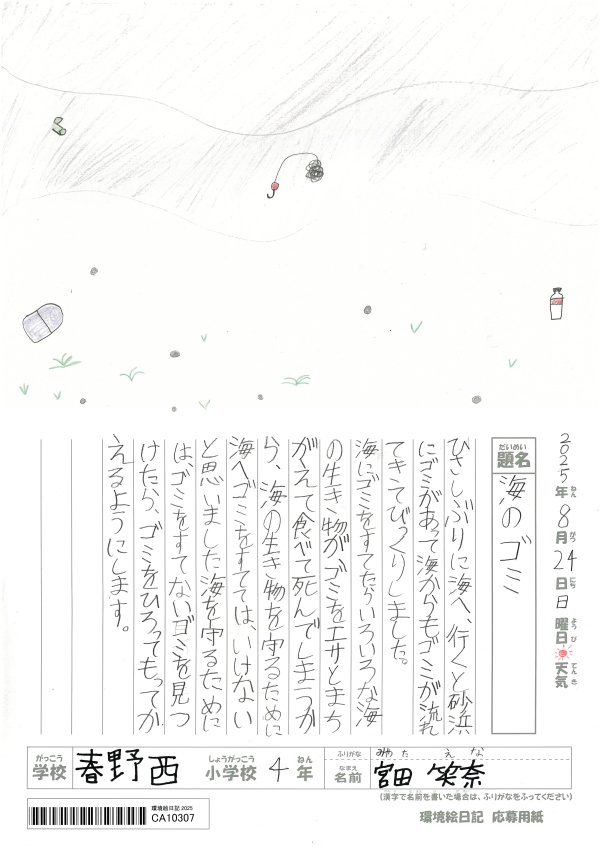 2025年8月24日日曜日天気
ねん がつ にち ようび てんき
だいめい
題名 海のゴミ
ひさしぶりに海へ、行くと砂浜
にゴミがあって海からもゴミが流れ
てきてびっくりしました。
海にゴミをすてたらいろいろな海
の生き物が、ゴミをエサとまち
がえて食べて死んでしまうか
ら、海の生き物を守るために
海へゴミをすてては、いけない
と思いました海を守るために
は、ゴミをすてないゴミを見つ
けたら、ゴミをひろってもってか
えるようにします。
がっこう しょうがっこう ねん
学校 春野西 小学校 4年
ふりがな みやた えな
なまえ
名前 宮田 笑奈
(漢字で名前を書いた場合は、ふりがなをふってください)
環境絵日記 2025
CA10307
環境絵日記 応募用紙